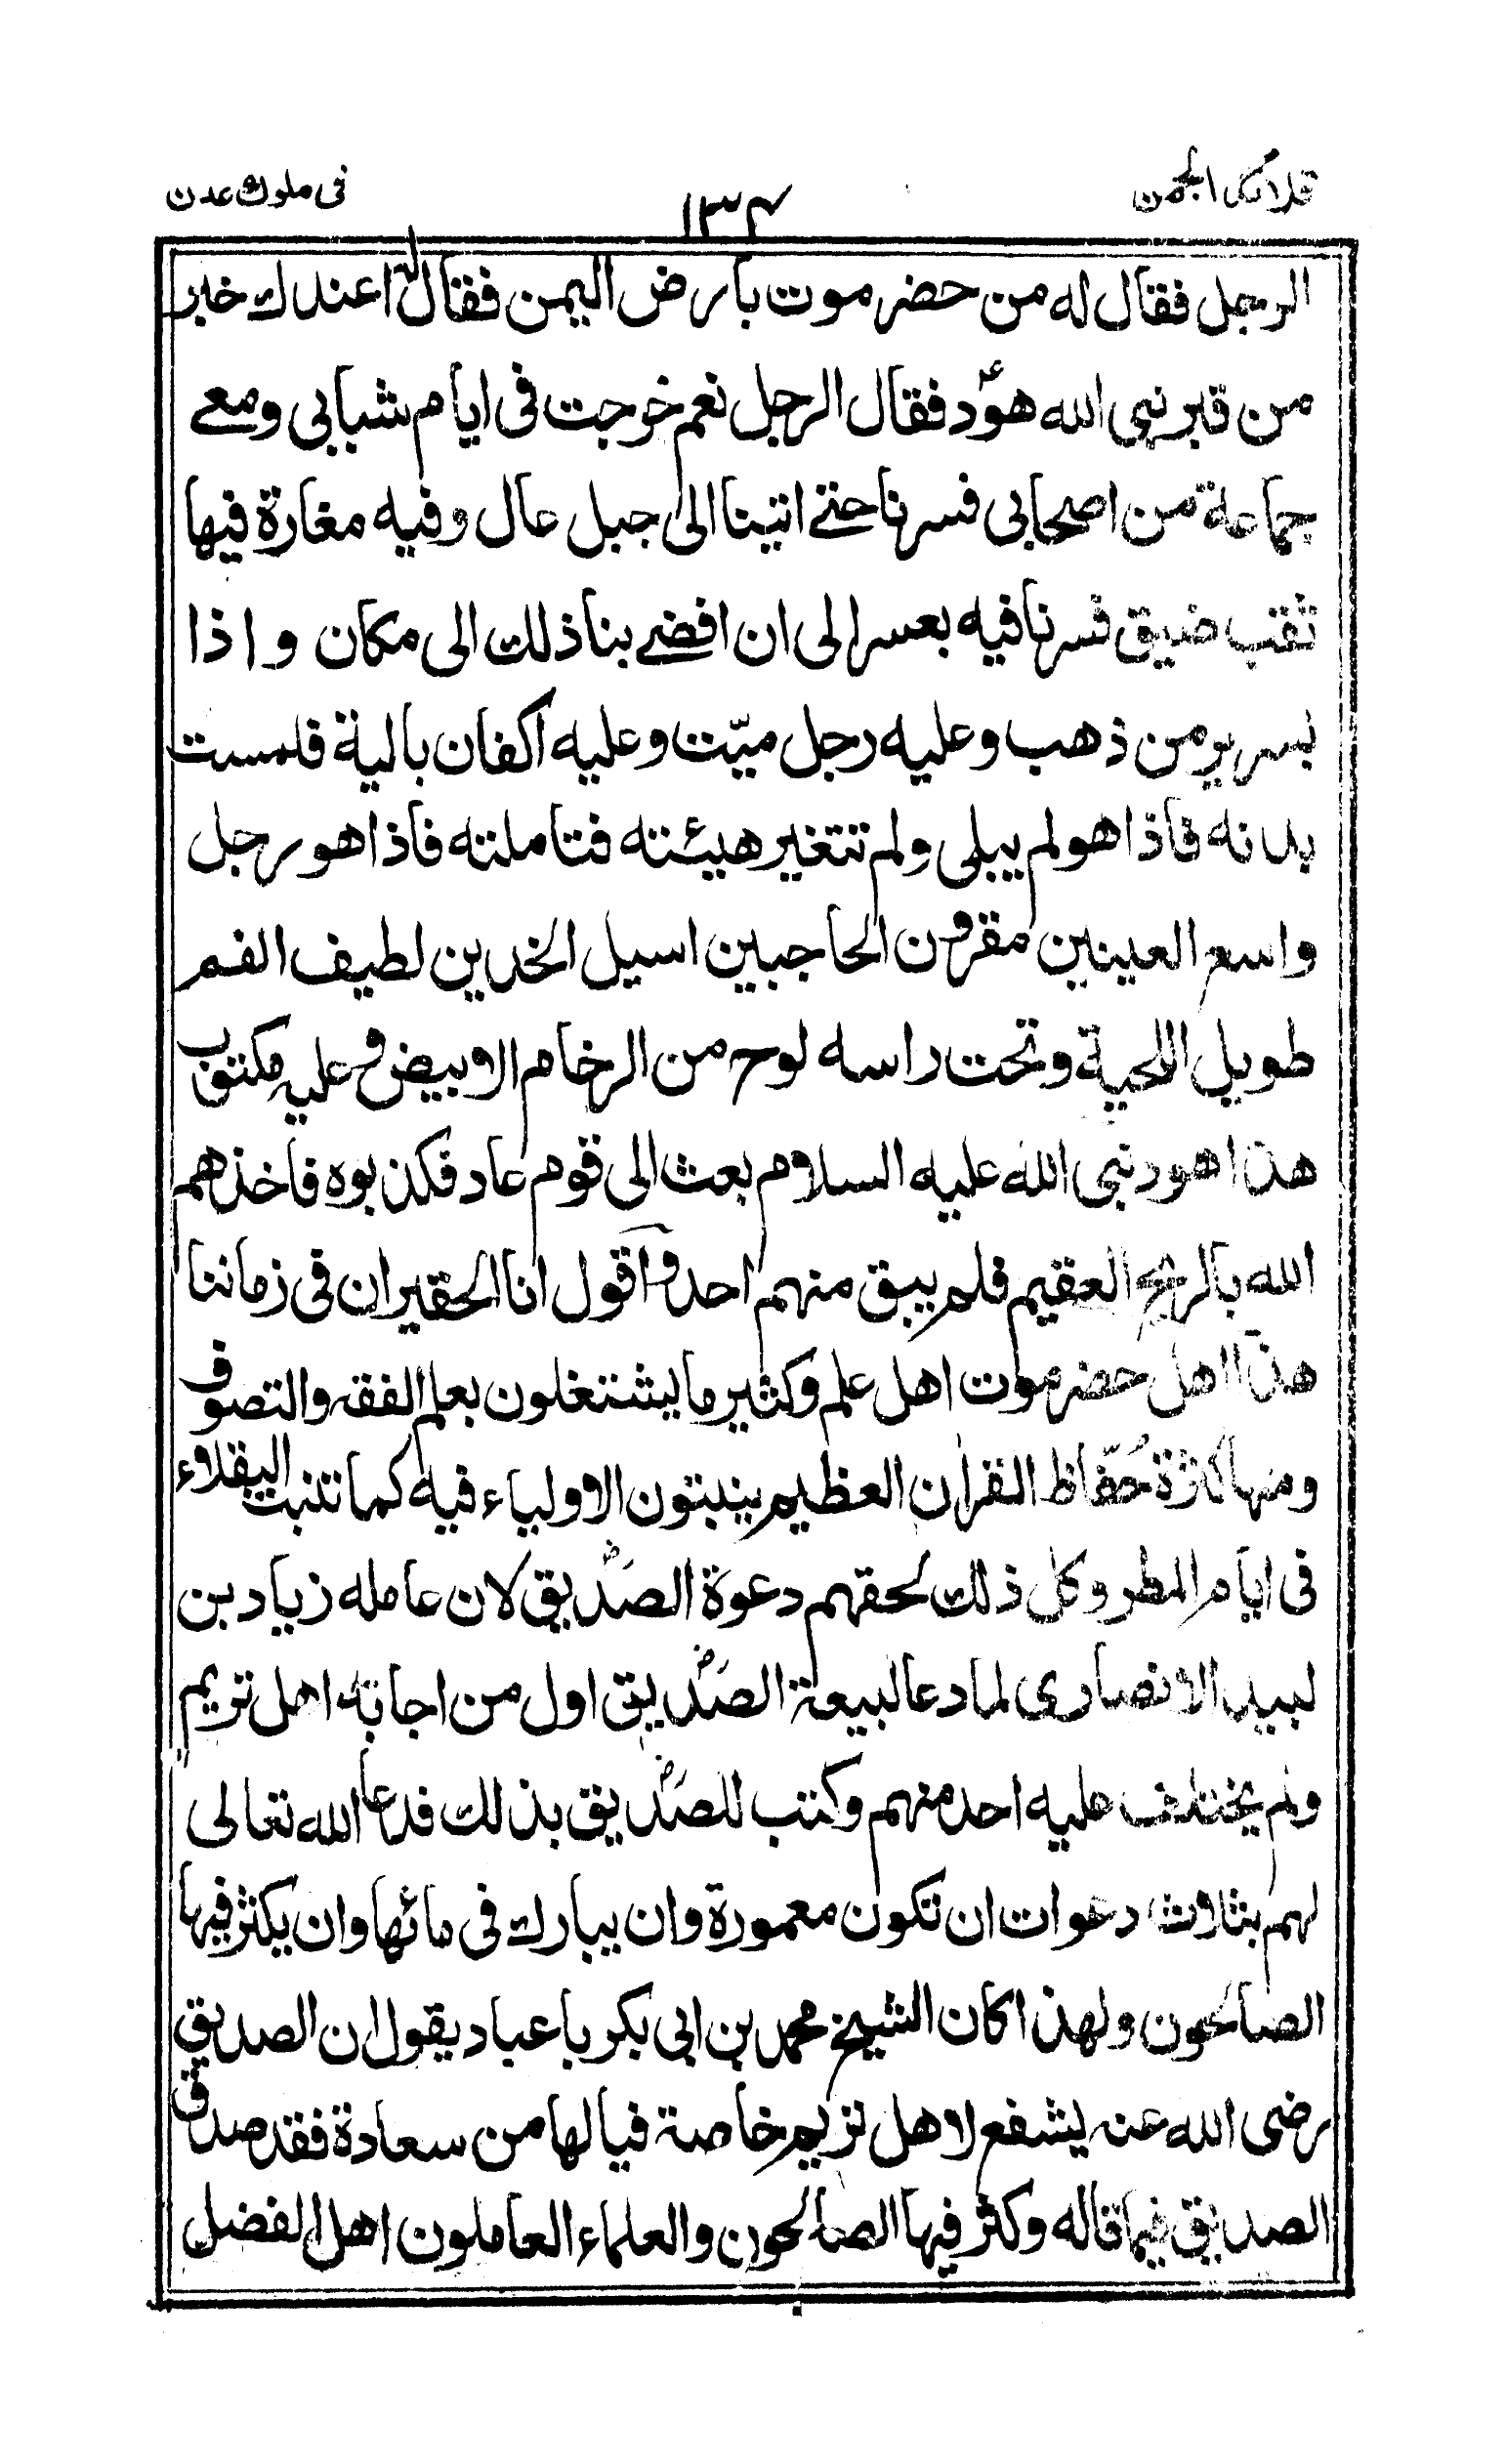 قلائد الجمن
١٣٤
فى ملوك عدن
الرجل فقال له من حضرموت بارض اليمن فقال له اعندك خبر
من قبر نبى الله هودؑ فقال الرجل نعم خرجت فى ايام شبابى ومعے
جماعة من اصحابى فسرنا حتے اتينا الى جبل عال وفيه مغارة فيها
ثقب ضيق فسرنا فيه بعسر الى ان افضے بنا ذلك الى مكان واذا
بسرير من ذهب وعليه رجل ميّت وعليه اكفان بالية فلمست
بدنه فاذا هو لم يبلى ولم تتغير هيئته فتاملته فاذا هو رجل
واسع العينين مقرون الحاجبين اسيل الخدين لطيف الفم
طويل اللحية وتحت راسه لوح من الرخام الابيض وعليه مكتوب
هذا هود نبى الله عليه السلام بعث الى قوم عاد فكذبوه فاخذهم
الله بالريح العقيم فلم يبق منهم احد وآقول انا الحقير ان فى زماننا
هذا اهل حضرموت اهل علم وكثير ما يشتغلون بعلم الفقه والتصوف
ومنها كثرة حُفّاظ القران العظيم ينبتون الاولياء فيه كما تنبت البقلاء
فى ايام المطر وكل ذلك لحقهم دعوة الصَدّيقؓ لان عامله زياد بن
لبيد الانصارى لما دعا لبيعة الصَدّيقؓ اول من اجابه اهل تريم
ولم يختلف عليه احد منهم وكتب للصَدّيقؓ بذلك فدعا الله تعالى
لهم بثلاث دعوات ان تكون معمورة وان يبارك فى مائها وان يكثر فيها
الصالحون ولهذا كان الشيخ محمد بن ابى بكر باعباد يقول ان الصديق
رضى الله عنه يشفع لاهل تريم خاصة فيا لها من سعادة فقد صدق
الصديق فيما قاله وكثر فيها الصالحون والعلماء العاملون اهل الفضل